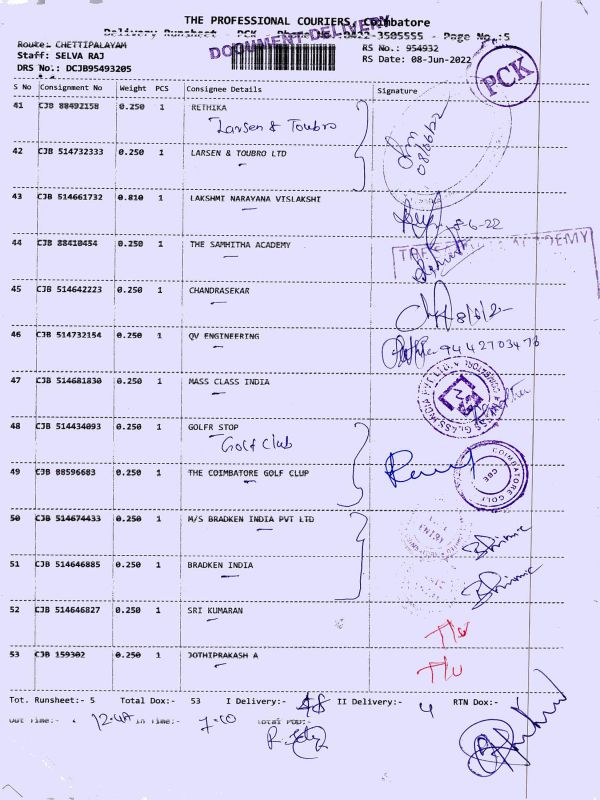 THE PROFESSIONAL COURIERS, Coimbatore
Delivery Runsheet - PCK - Phone No.:0422-3505555 - Page No.:5
DOCUMENT DELIVERY
Route: CHETTIPALAYAM
RS No.: 954932
Staff: SELVA RAJ
RS Date: 08-Jun-2022
DRS No.: DCJB95493205
PCK
S No Consignment No Weight PCS Consignee Details Signature
41 CJB 88492158 0.250 1 RETHIKA
Larsen & Toubro
08/06/22
42 CJB 514732333 0.250 1 LARSEN & TOUBRO LTD
43 CJB 514661732 0.810 1 LAKSHMI NARAYANA VISLAKSHI
6-22
44 CJB 88410454 0.250 1 THE SAMHITHA ACADEMY
ACADEMY
45 CJB 514642223 0.250 1 CHANDRASEKAR
8/6/2
46 CJB 514732154 0.250 1 QV ENGINEERING
9442703478
47 CJB 514681830 0.250 1 MASS CLASS INDIA
48 CJB 514434093 0.250 1 GOLFR STOP
Golf Club
49 CJB 88596683 0.250 1 THE COIMBATORE GOLF CLUP
COIMBATORE GOLF
CBE
50 CJB 514674433 0.250 1 M/S BRADKEN INDIA PVT LTD
51 CJB 514646885 0.250 1 BRADKEN INDIA
52 CJB 514646827 0.250 1 SRI KUMARAN
53 CJB 159302 0.250 1 JOTHIPRAKASH A
Tot. Runsheet:- 5 Total Dox:- 53 I Delivery:- II Delivery:- 4 RTN Dox:-
Out Time:- In Time:- 7.00 Total POD:-